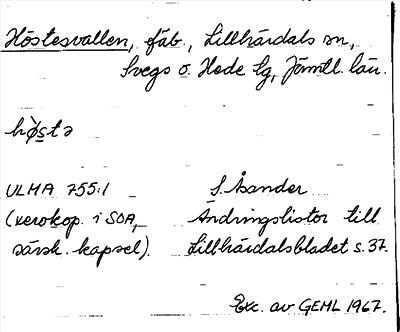 Höstesvallen, fäb., Lillhärdals sn,
Svegs o. Hede tg, Jämtl. län.
hø̀stə
ULMA 755:1
(xerokop. i SOA,
särsk. kapsel).
S. Åsander
Ändringslistor till
Lillhärdalsbladet s. 37.
Exc. av GEML 1967.